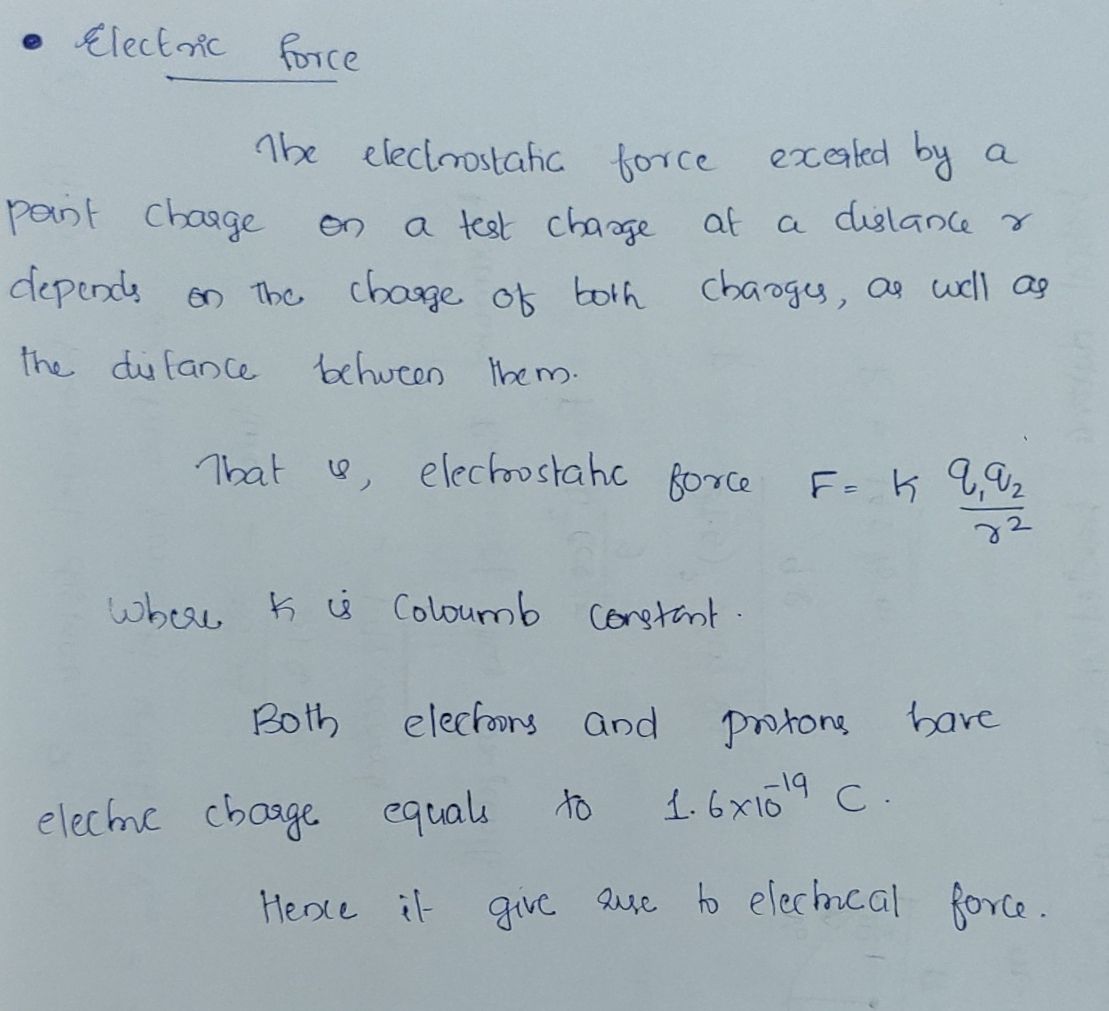 • Electric force
The electrostatic force exerted by a
point charge on a test charge at a distance r
depends on the charge of both charges, as well as
the distance between them.
That is, electrostatic force F = K q₁q₂/r²
Where K is Coloumb constant.
Both electrons and protons have
electric charge equals to 1.6×10⁻¹⁹ C.
Hence it give rise to electrical force.